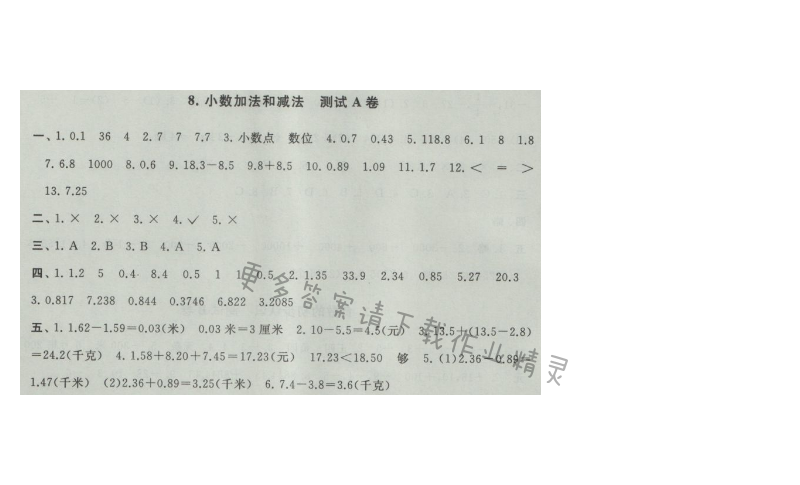 8. 小数加法和减法 测试 A 卷
一、1. 0.1 36 4 2. 7 7 7.7 3. 小数点 数位 4. 0.7 0.43 5. 118.8 6. 1 8 1.8
7. 6.8 1000 8. 0.6 9. 18.3－8.5 9.8＋8.5 10. 0.89 1.09 11. 1.7 12. ＜ ＝ ＞
13. 7.25
二、1. × 2. × 3. × 4. ✓ 5. ×
三、1. A 2. B 3. B 4. A 5. A
四、1. 1.2 5 0.4 8.4 0.5 1 1 0.5 2. 1.35 33.9 2.34 0.85 5.27 20.3
3. 0.817 7.238 0.844 0.3746 6.822 3.2085
五、1. 1.62－1.59＝0.03(米) 0.03 米＝3 厘米 2. 10－5.5＝4.5(元) 3. 13.5＋(13.5－2.8)
＝24.2(千克) 4. 1.58＋8.20＋7.45＝17.23(元) 17.23＜18.50 够 5. (1)2.36－0.89＝
1.47(千米) (2)2.36＋0.89＝3.25(千米) 6. 7.4－3.8＝3.6(千克)
更多答案请下载作业精灵